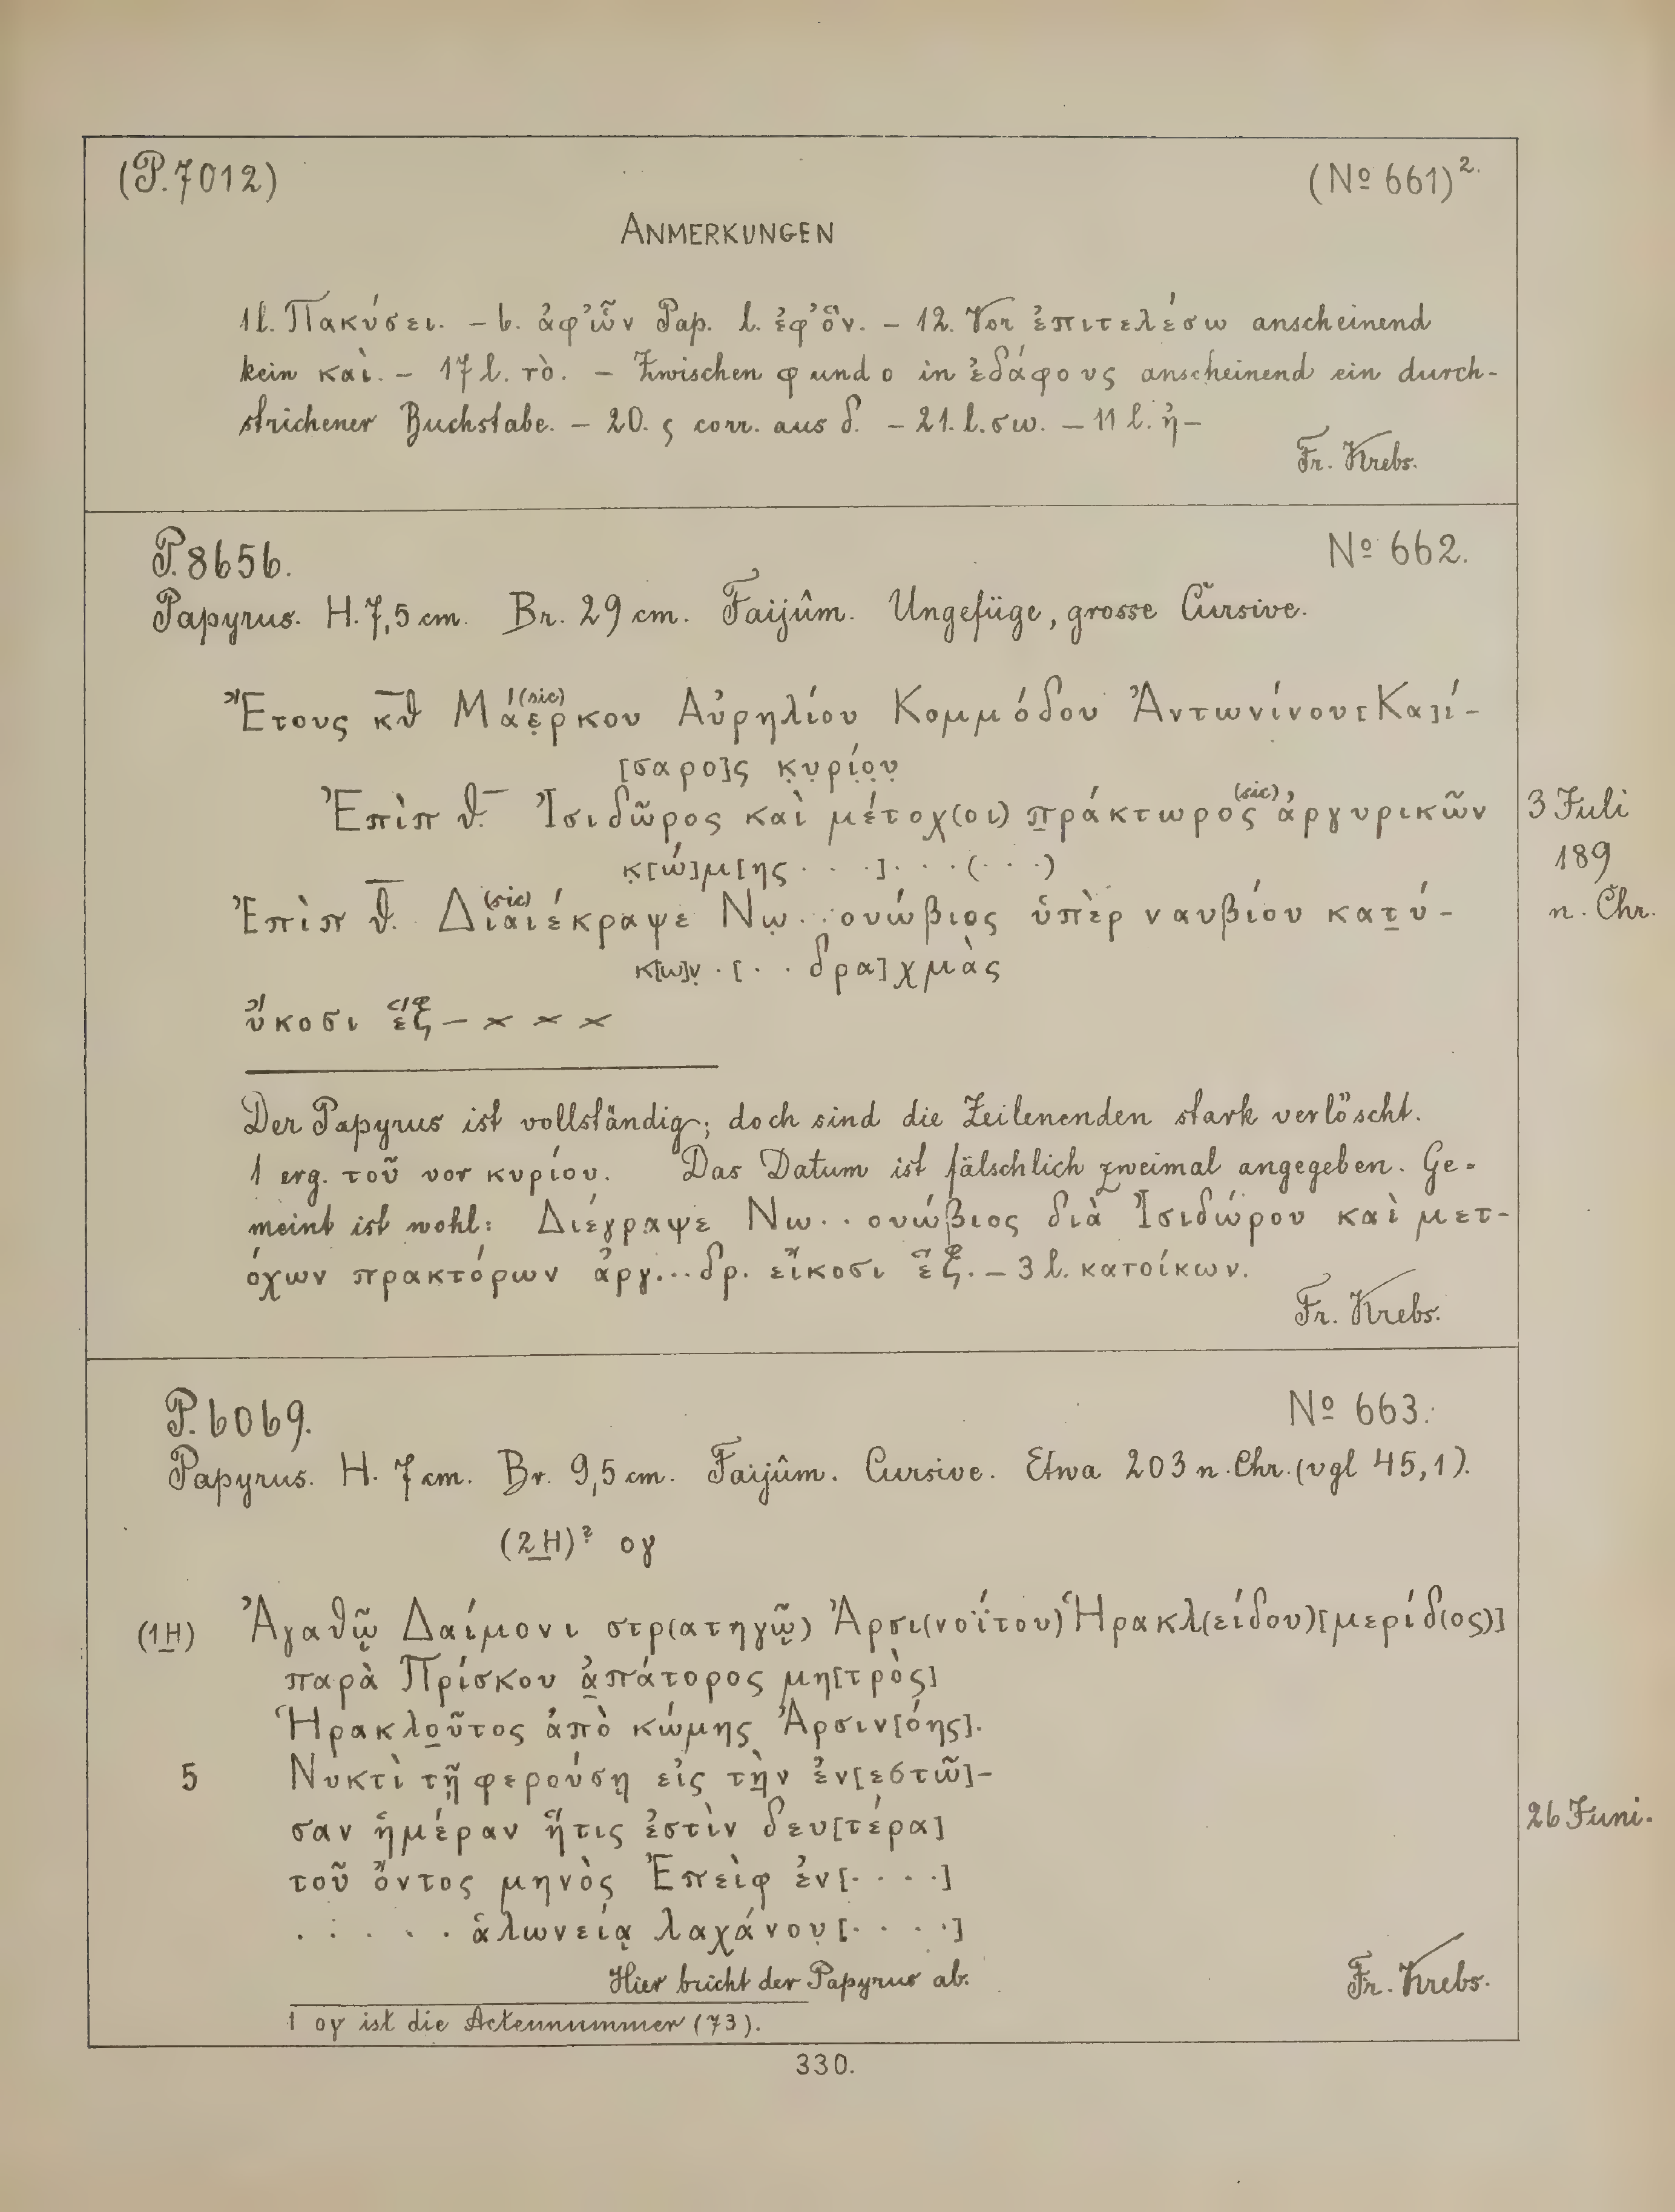 (P. 7012) (№ 661)².
ANMERKUNGEN
1 l. Πακύσει. – 6. ἀφ’ὧν Pap. l. ἐφ’ὃν. – 12. Vor ἐπιτελέσω anscheinend
kein καὶ. – 17 l. τὸ. – Zwischen φ und ο in ἐδάφους anscheinend ein durch-
strichener Buchstabe. – 20. ς corr. aus δ. – 21. l. σω. – 11 l. ἠ–
Fr. Krebs.
P. 8656. № 662.
Papyrus. H. 7,5 cm. Br. 29 cm. Faijûm. Ungefüge, grosse Cursive.
Ἔτους κ̅θ̅ Μάε̣ρκου (sic) Αὐρηλίου Κομμόδου Ἀντωνίνου [Κα]ί-
[σαρο]ς κ̣υ̣ρ̣ί̣ο̣υ̣
Ἐπὶπ θ̅. Ἰσιδῶρος καὶ μέτοχ(οι) π̣ράκτωρος (sic) ἀργυρικῶν
κ̣[ώ]μ[ης . . .] . . . (. . .)
3 Juli
189
n. Chr.
Ἐπὶπ θ̅. Διαιέκραψε (sic) Νω̣ . . ο̣υώβιος ὑπὲρ ναυβίου κατ̣ύ-
κ[ω]ν̣ . [ . . δρα]χμὰς
ὔκοσι ἕξ – × × ×
Der Papyrus ist vollständig; doch sind die Zeilenenden stark verlöscht.
1 erg. τοῦ vor κυρίου. Das Datum ist fälschlich zweimal angegeben. Ge-
meint ist wohl: Διέγραψε Νω . . ουώβιος διὰ Ἰσιδώρου καὶ μετ-
όχων πρακτόρων ἀργ. . . δρ. εἴκοσι ἕξ. – 3 l. κατοίκων.
Fr. Krebs.
P. 6069. № 663.
Papyrus. H. 7 cm. Br. 9,5 cm. Faijûm. Cursive. Etwa 203 n. Chr. (vgl 45,1).
(2H)? ογ
(1H) Ἀγαθῷ Δαίμονι στρ(ατηγῷ) Ἀρσι(νοΐτου) Ἡρακλ(είδου) [μερίδ(ος)]
παρὰ Πρίσκου ἀ̣πάτορος μη[τρὸς]
Ἡρακλο̣ῦτος ἀπὸ κώμης Ἀρσιν[όης].
5 Νυκτὶ τῇ φερούσῃ εἰς τὴ̣ν ἐν[εστῶ]-
σαν ἡμέραν ἥτις ἐστὶν δευ[τέρα]
26 Juni.
τοῦ ὄντος μηνὸς Ἐπεὶφ ἐν[. . . .]
. . . . . ἁλωνείᾳ λαχάνου̣[. . . .]
Hier bricht der Papyrus ab.
Fr. Krebs.
1 ογ ist die Actennummer (73).
330.